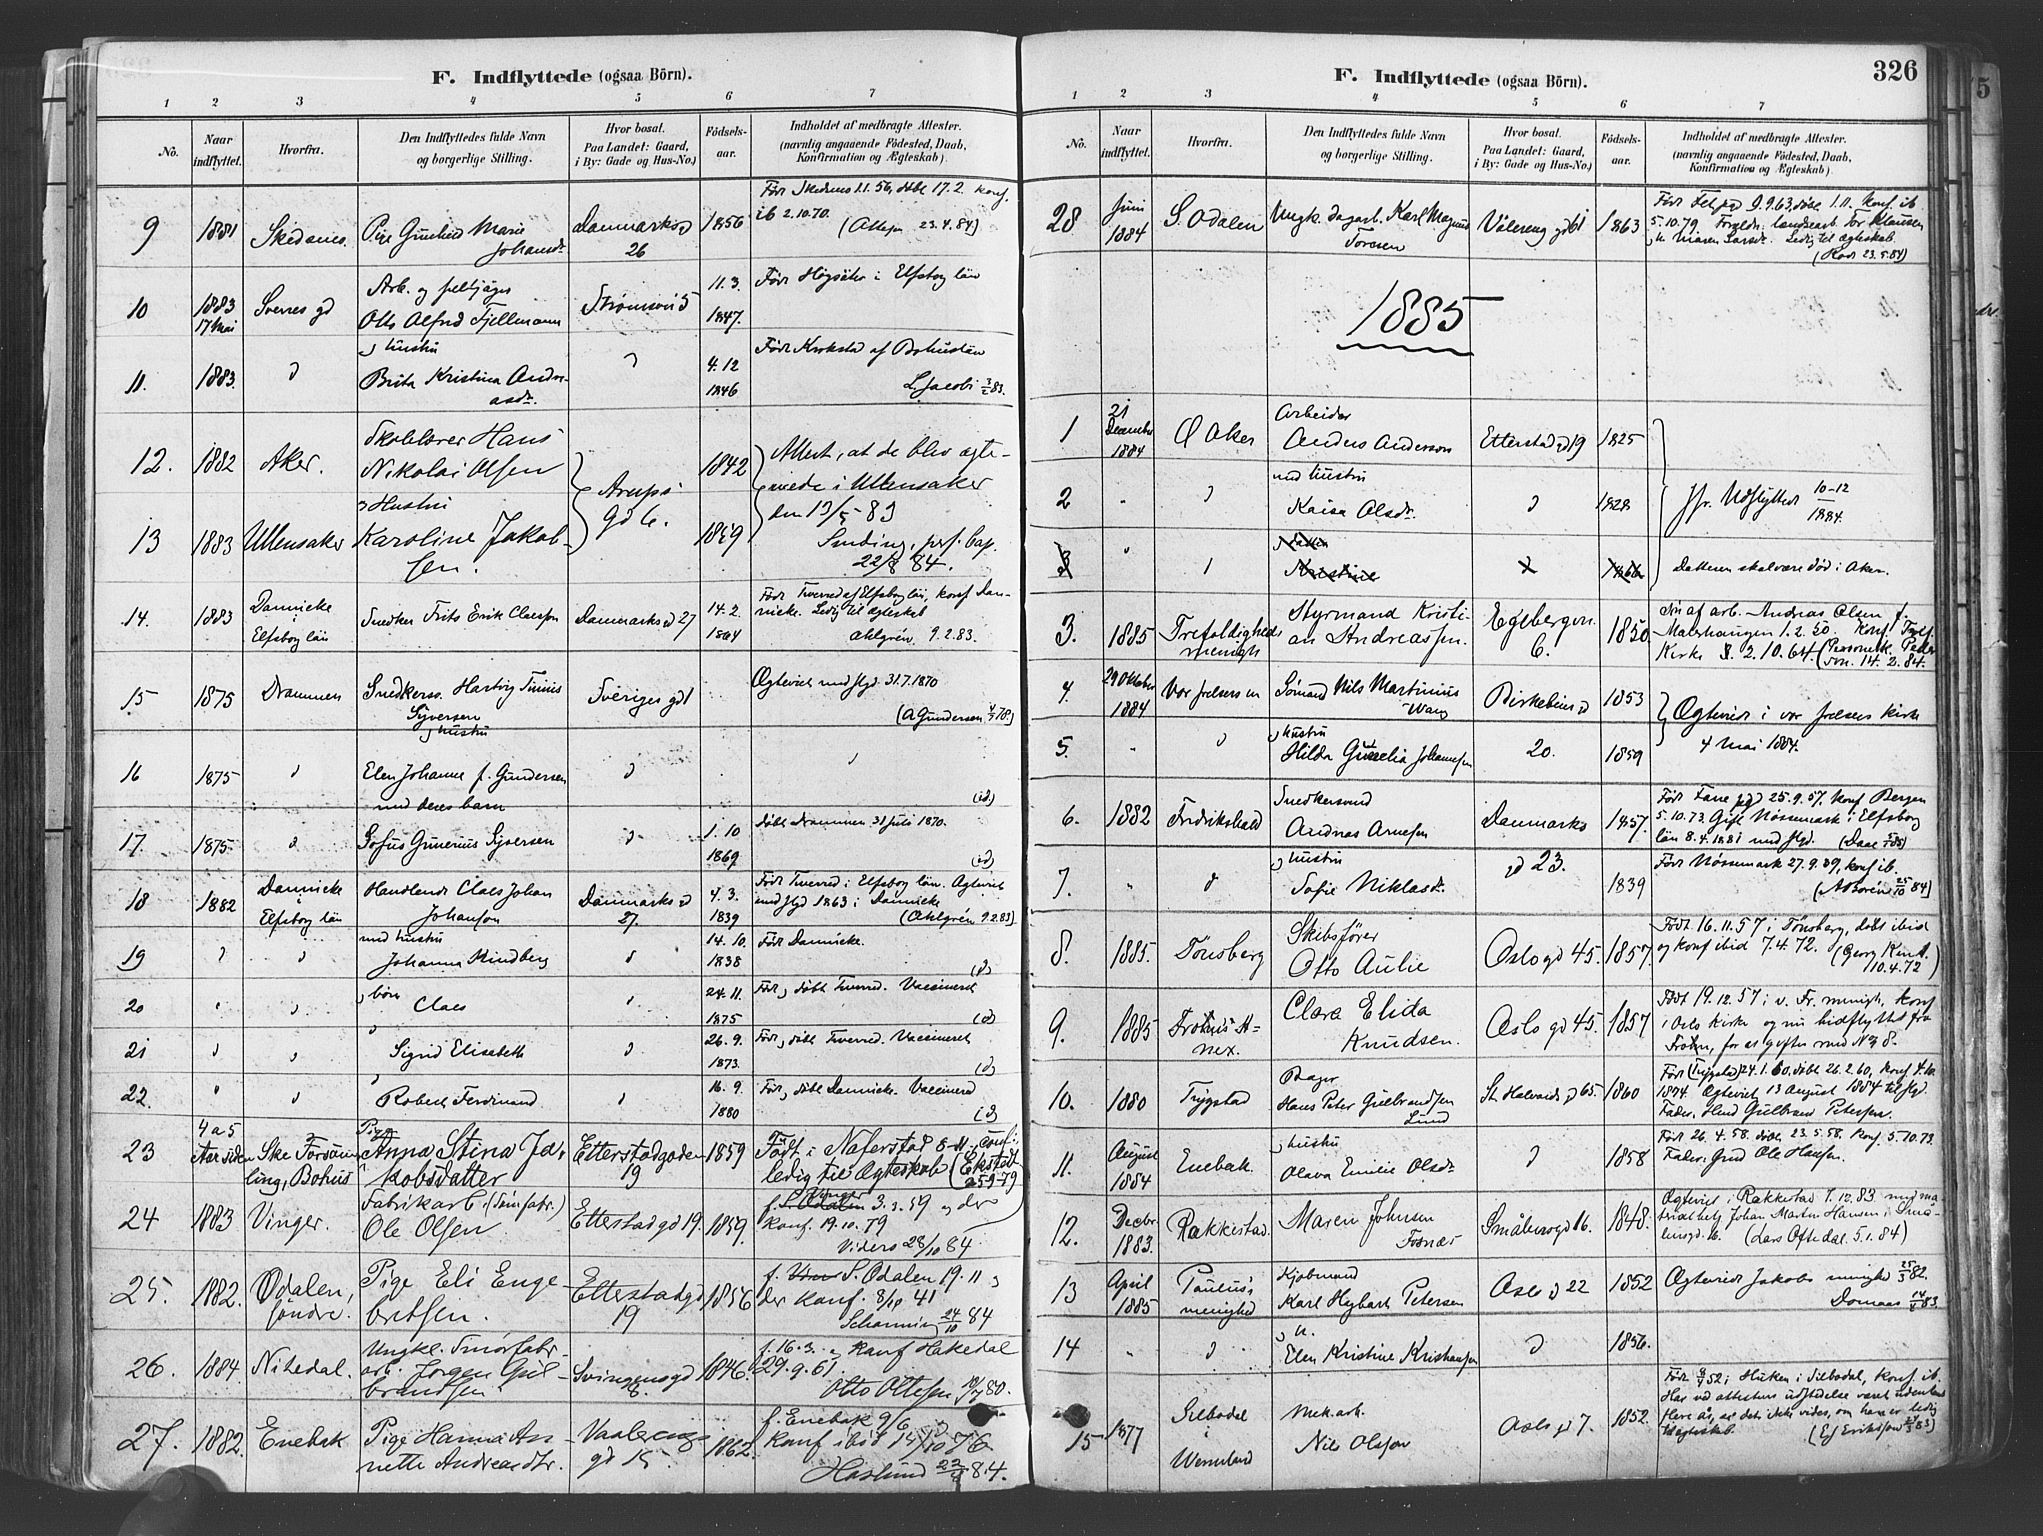 F. Indflyttede (ogsaa Börn).
1 2 3 4 5 6 7
No. Naar indflyttet. Hvorfra. Den Indflyttedes fulde Navn og borgerlige Stilling. Hvor bosat. Paa Landet: Gaard, i By: Gade og Hus-No.) Födsels-aar. Indholdet af medbragte Attester. (navnlig angaaende Födested, Daab, Konfirmation og Ægteskab).
9 1881 Skedsmo. Pige Gunhild Marie Johansdr Danmarksgd 26 1856 Født Skedsmo 1.1.56, døbt 17.2. konf. ib 2.10.70. (Attesen 23.4.84)
10 1883 17 Mai Sverres gd Arb. og feltjæger Otto Alfred Fjellmann Strømsvei 5 11.3. 1847. Født Högsäter i Elfsborg län
11. 1883. " og hustru Brita Kristina Andreasdr. " 4.12 1846 Født Krokstad af Bohuslän L. Jacobi 3/2 83.
12. 1882 Aker. Skolelærer Hans Nikolai Olsen Arups gd 6. 1842 Attest, at de blev ægteviede i Ullensaker den 13/5 83
13 1883 Ullensaker og Hustru Karoline Jakobsen. 1849 Sinding, pers. cap. 22/8 84.
14. 1883 Dannicke i Elfsborg län Snedker Frits Erik Claesson Danmarksgd 27 14.2. 1864 Født Tverred af Elfsborg län, konf Dannicke. Ledig til ægteskab Ahlgrén 9.2.83.
15 1875 Drammen Snedkersv. Hartvig Tinius Syversen Sveriges gd 1 Ægteviet med flgd. 31.7.1870 (A Gundersen 4/7 78)
16 1875 " og hustru Elen Johanne f. Gundersen " " (id.)
17. 1875. " med deres barn Sofus Gunerius Syversen " 1.10 1869 Døbt Drammen 31 juli 1870. (id)
18 1882 Dannicke i Elfsborg län Handlende Claes Johan Johanson Danmarksgd 27. 4.3. 1839 Født Tverred i Elfsborg län. Ægteviet med flgd 1863 i Dannicke (Ahlgrén 9.2.83)
19 " " med hustru Johanna Mindberg " 14.10. 1838 Født Dannicke. (d)
20 " " og børn Claes " 24.11. 1875 Født og døbt Tverred. Vaccineret (d)
21 " " " Sigrid Elisabeth " 26.9. 1873. Født og døbt Tverred. Vaccineret (d)
22. " " " Robert Ferdinand " 16.9. 1880 Født og døbt Dannicke. Vaccinerd (d)
23 4 a 5 Aar siden Ske Forsamling, Bohus Pige Anna Stina Jakobsdatter Etterstadgaden 19 1859 Født i Naverstad 8-11, conf: ledig til Ægteskab (Ekstedt 25-9-79)
24 1883 Vinger. Fabrikarb. (Sømfabr.) Ole Olsen Etterstadgd 19. 1859. f. S. Odalen Vinger 3.3.59 og der konf. 19.10.79 Viders 28/10 84
25. 1882. Odalen, søndre. Pige Eli Engebretsen. Etterstadgd 19 1856 f. S. Odalen 19.11 og der konf. 8/10 41 Schanning 24/10 84
26. 1884. Nitedal. Ungkl. Smørfabr. arb. Jørgen Gulbrandsen Svingensgd 8. 1846. f. 16.3. og konf Hakedal 29.9.61. Otto Ottesen 10/7 80.
27. 1882. Enebak Pige Hanna Annette Andreasdtr. Vaalerengs gd 15. 1862. f. Enebak 9/6 konf ibid 15/10 76 Haslund 22/9 84.
326
F. Indflyttede (ogsaa Börn).
1 2 3 4 5 6 7
No. Naar indflyttet. Hvorfra. Den Indflyttedes fulde Navn og borgerlige Stilling. Hvor bosat. Paa Landet: Gaard, i By: Gade og Hus-No.) Födsels-aar. Indholdet af medbragte Attester. (navnlig angaaende Födested, Daab, Konfirmation og Ægteskab).
28 Juni 1884 S. Odalen Ungk. dagarb. Karl Magnus Torsen Vålereng gd 61 1863 Født Fet pgd 9.9.63, døbt 1.11. Konf ib 5.10.79. Foreldr. landsarb. Tor Klausen og Maren Larsdr. Ledig til ægteskab. (Hode 23.5.84)
1885
1 21 December 1884 Ø Aker Arbeider Anders Anderson Etterstadgd 19 1825
2 " " med hustru Kaisa Olsdr. " 1828 Jfr. Udflyttede 10-12 1884.
3 " " og datter Kristine " 1866 Datteren skal være død i Aker.
3. 1885 Trefoldigheds menigh Styrmand Kristian Andreassen. Egebergvn 6. 1850. Søn af arb. Andreas Olsen f. Malerhaugen 1.2.50. Konf. Tref. Kirke 2.10.64. (Personelk. Pederson. 14.2.84.
4. 29 Oktober 1884 Vor frelsers m Sømand Nils Martinius Wang Birkebeinergd 1853 Ægteviet i vor frelsers kirke
5. " " og hustru Hilda Gunelia Johannesen 20. 1859 4 mai 1884.
6. 1882 Fredrikshald Snedkersvend Andreas Arnesen Danmarks 1857. Født Fane pgd 25.9.57. konf Bergen 5.10.73. Gift Nössemark i Elfsborg län 8.4.1881 med flgd. (Daae)
7. " " og hustru Sofie Niklasdr. gd 23. 1839 Født Nössemark 27.9.39, konf ib. (A Thorén 25/10 84)
8. 1885. Tønsberg Skibsfører Otto Aulie Oslo gd 45. 1857 Født 16.11.57 i Tønsberg, døbt ibid og konf ibid 7.4.72. (Georg Kent. 10.4.72)
9. 1885 Frogns Annex. Clara Elida Knudsen. Oslo gd 45. 1857 Født 19.12.57 i v. Fr. menigh, konf i Oslo Kirke og nu hidflyttet fra Frogn, for at giftes med No 8.
10. 1880 Trygstad Bager Hans Peter Gulbrandsen Lund St Halvards gd 65. 1860 Født (Trygstad) 24.1.60. døbt 26.2.60, konf 4.10 1874. Ægteviet 13 august 1884 til flgd. Fader: Hmd Gulbrand Petersen.
11. August 1884 Enebak. og hustru Olava Emilie Olsdr " 1858 Født 26.4.58. døbt 23.5.58. konf. 5.10.73. Fader: Gmd Ole Hansen.
12. Decbr. 1883. Rakkestad Maren Johnsen Fosnæs Smålensgd 16. 1848. Ægteviet i Rakkestad 7.12.83 med Johan Martin Hansen i Smålensgd. 16. (Lars Oftedal. 5.1.84)
13 April 1885 Paulus menighed Kjøbmand Karl Hybart Petersen Oslo gd 22 1852 Ægteviet Jakobs menighed 25/3 82. Domaas 14/4 83.
14 " " og h. Elen Kristine Kristiansen " 1856.
15 1877 Silbodal i Wermland Mek. arb. Nils Olsson Oslo gd 7. 1852. Født 9/4 52 i Huken i Silbodal, konf ib. Har ved attestens udstedelse været udenlands flere år, så det ikke vides, om han er ledig til ægteskab. (Ej Eriksson 24/3 83)